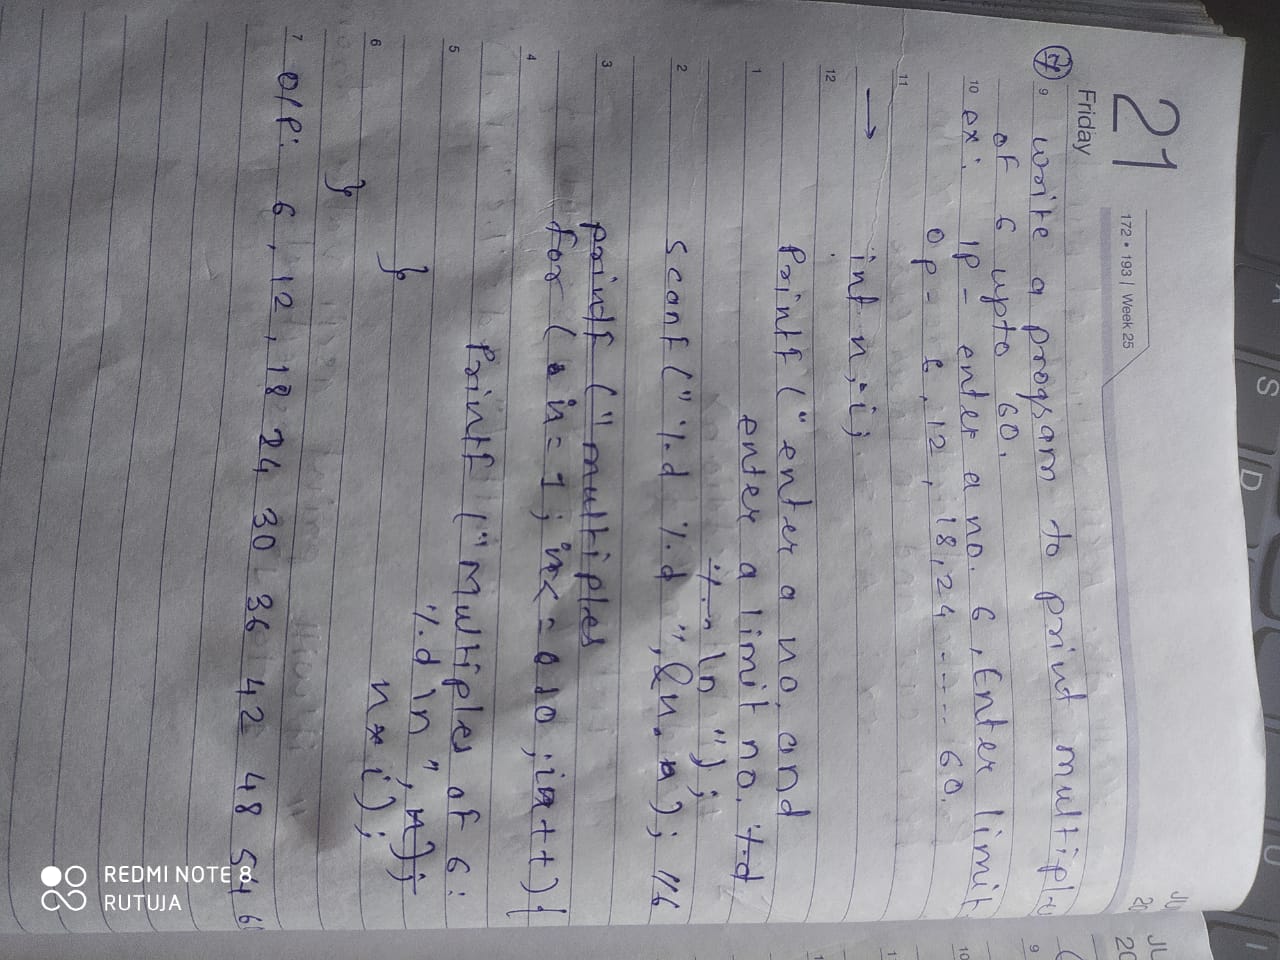 21
Friday
172 • 193 | Week 25
9 write a program to print multiple
of 6 upto 60.
10 ex: IP - enter a no. 6, Enter limit
OP - 6, 12, 18, 24 - - - - 60.
11
→ int n, i;
12
Printf (" enter a no. and
1 enter a limit no. %d
\n ");
2 scanf (" %d %d ", &n. n); //6
3 printf ( " multiples
for ( i = 1; i < = 10 ; i++ ) {
4
Printf (" Multiples of 6 :
5 %d \n ", n);
n * i );
6 }
}
7 O/P: 6, 12, 18 24 30 36 42 48 54 60
REDMI NOTE 8
RUTUJA